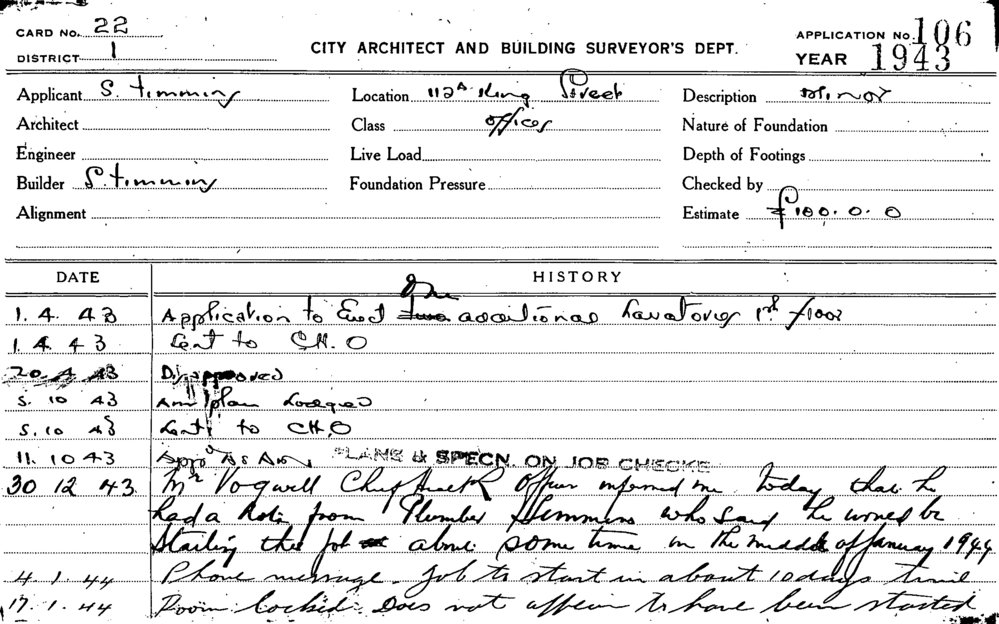 CARD No. 22
DISTRICT 1
CITY ARCHITECT AND BUILDING SURVEYOR'S DEPT.
APPLICATION No. 106
YEAR 1943
Applicant S. Timmins
Location 112A King Street
Description Minor
Architect
Class offices
Nature of Foundation
Engineer
Live Load
Depth of Footings
Builder S. Timmins
Foundation Pressure
Checked by
Alignment
Estimate £100.0.0
DATE HISTORY
One
1. 4. 43 Application to Erect Two additional Lavatories 1st floor
1. 4. 43 Sent to CH.O
20 4 43 Disapproved
5. 10 43 Am plan Lodged
5. 10 43 Sent to CH.O
11. 10 43 App'd As Am PLANS & SPECN. ON JOB CHECKE
30 12 43. Mr Vogwell Chief Health Officer informed me today that he
had a note from Plumber Timmins who said he would be
starting the job about some time in the middle of January 1944
4. 1. 44 Phone message. Job to start in about 10 days time
17. 1. 44 Room locked. Does not appear to have been started